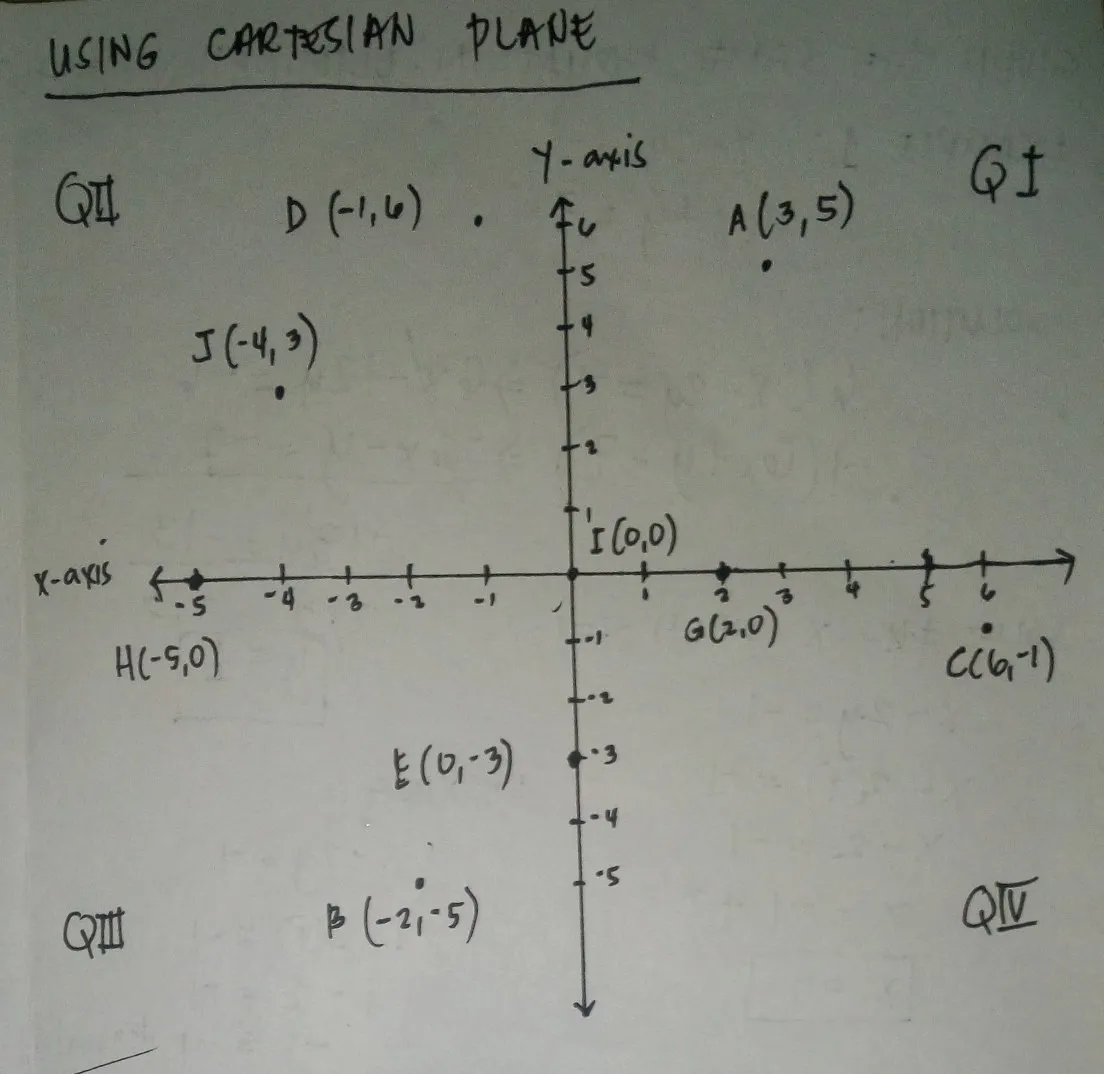 USING CARTESIAN PLANE
Y-axis
QII
QI
D (-1,6)
A(3,5)
6
5
J(-4,3)
4
3
2
1
I(0,0)
x-axis
-5 -4 -3 -2 -1 1 2 3 4 5 6
-1
G(2,0)
H(-5,0)
C(6,-1)
-2
E(0,-3)
-3
-4
-5
B (-2,-5)
QIII
QIV